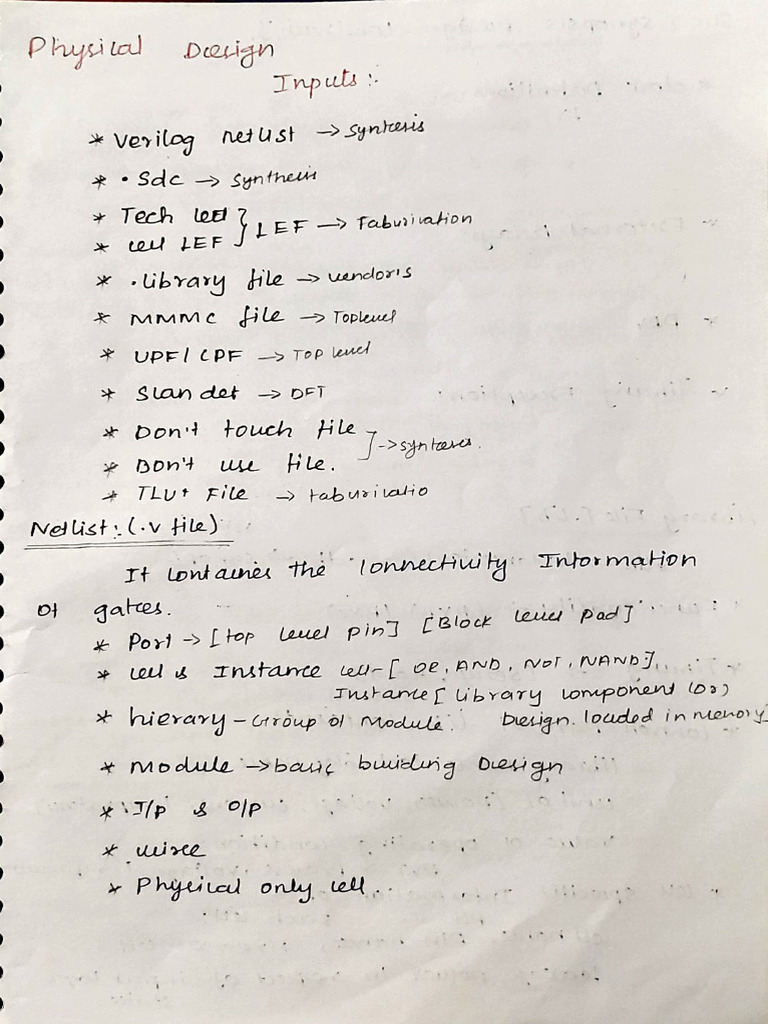 Physical Design
Inputs:-
* Verilog netlist → syntesis
* .Sdc → synthesis
* Tech LEF } LEF → Faburication
* cell LEF
* .library file → vendors
* MMMC file → Toplevel
* UPF/CPF → TOP level
* Scan def → DFT
* Don't touch file } → syntesis.
* Don't use file.
* TLU+ File → faburicatio
Netlist: (.v file)
It containes the Connectivity Information
of gates.
* Port → [top level pin] [Block level pad]
* cell & Instance cell- [OR, AND, NOT, NAND],
Instance [library component (or)
* hierary - Group of Module. Design loaded in memory]
* Module → basic building Design
* I/P & O/P
* wire
* Physical only cell.